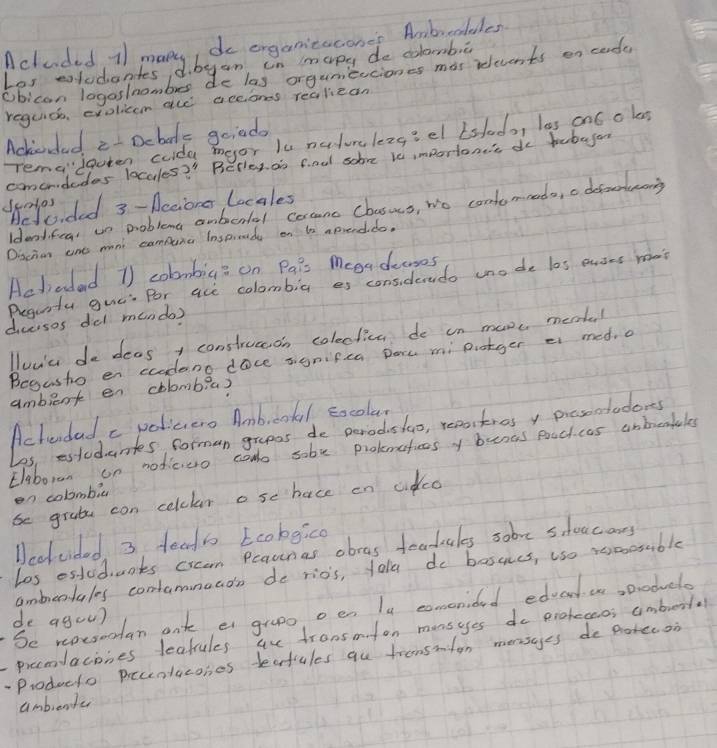 Actuded 1) mapa de organicacones Ambientales
Los estudiantes dibujan un mapa de colombia
Ubican logos/nombres de las organizaciones mas relevants en cada
region, explican que acciones realizan
Actividad 2- Debate guiado
Tema "¿quien cuida mejor la naturaleza: el Estado, las ONG o las
comunidades locales?" Reflexion final sobre la importancia de trabajar
juntos
Actividad 3 - Acciones Locales
Identifican un problema ambiental cercano (basura, rio contaminado, o deforestacion)
Diseñan una mini campaña inspirada en lo aprendido.
Actividad 1) colombia: un Pais Megadiverso
Pregunta guia: Por que colombia es considerado uno de los paises mas
diversos del mundo?
lluvia de ideas y construccion colectiva de un mapa mental
Pregunta en cuaderno ¿que significa para mi proteger el medio
ambiente en colombia?
Actividad 2 noticiero Ambiental Escolar
Los estudiantes forman grupos de periodistas, reporteros y presentadores
Elaboran un noticiero sobre problematicas y buenas practicas ambientales
en colombia
Se graba con celular o se hace en vivo
Actividad 3 teatro Ecologico
Los estudiantes crean pequeñas obras teatrales sobre situacions
ambientales contaminacion de rios, tala de bosques, uso responsable
de agua)
- Se representan ante el grupo o en la comunidad educativa. Producto
- presentaciones teatrales que transmiten mensajes de proteccion ambiental
- Producto Presentaciones teatrales que transmiten mensajes de proteccion
ambiental